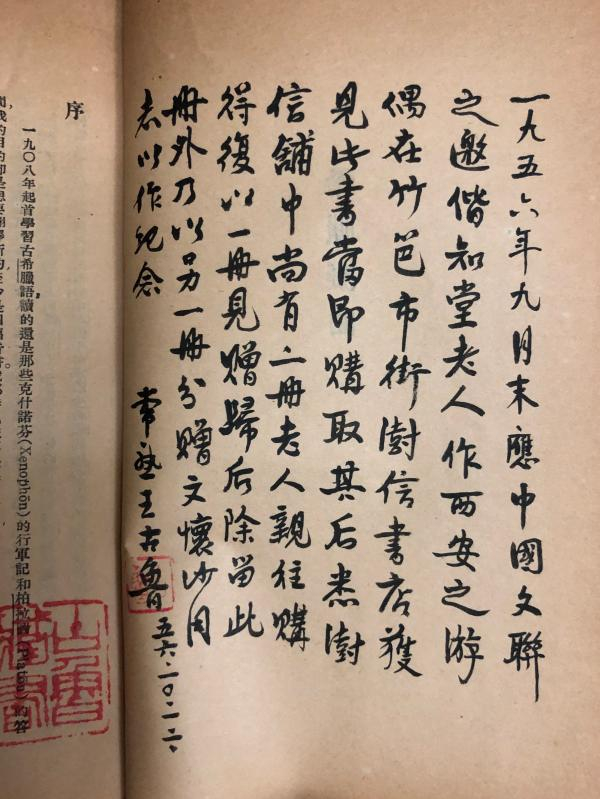 一九五六年九月末應中國文聯
之邀偕知堂老人作西安之游
偶在竹笆市街澍信書店獲
見此書當即購取其后悉澍
信舖中尚有二冊老人親往購
得復以一冊見贈歸后除留此
冊外乃以另一冊分贈文懷沙因
志以作紀念 常熟王古魯 五六·一〇·
序
一九〇八年起首學習古希臘語，讀的還是那些克什諾芬(Xenophōn)的行軍記和柏拉圖(Platōn)的答